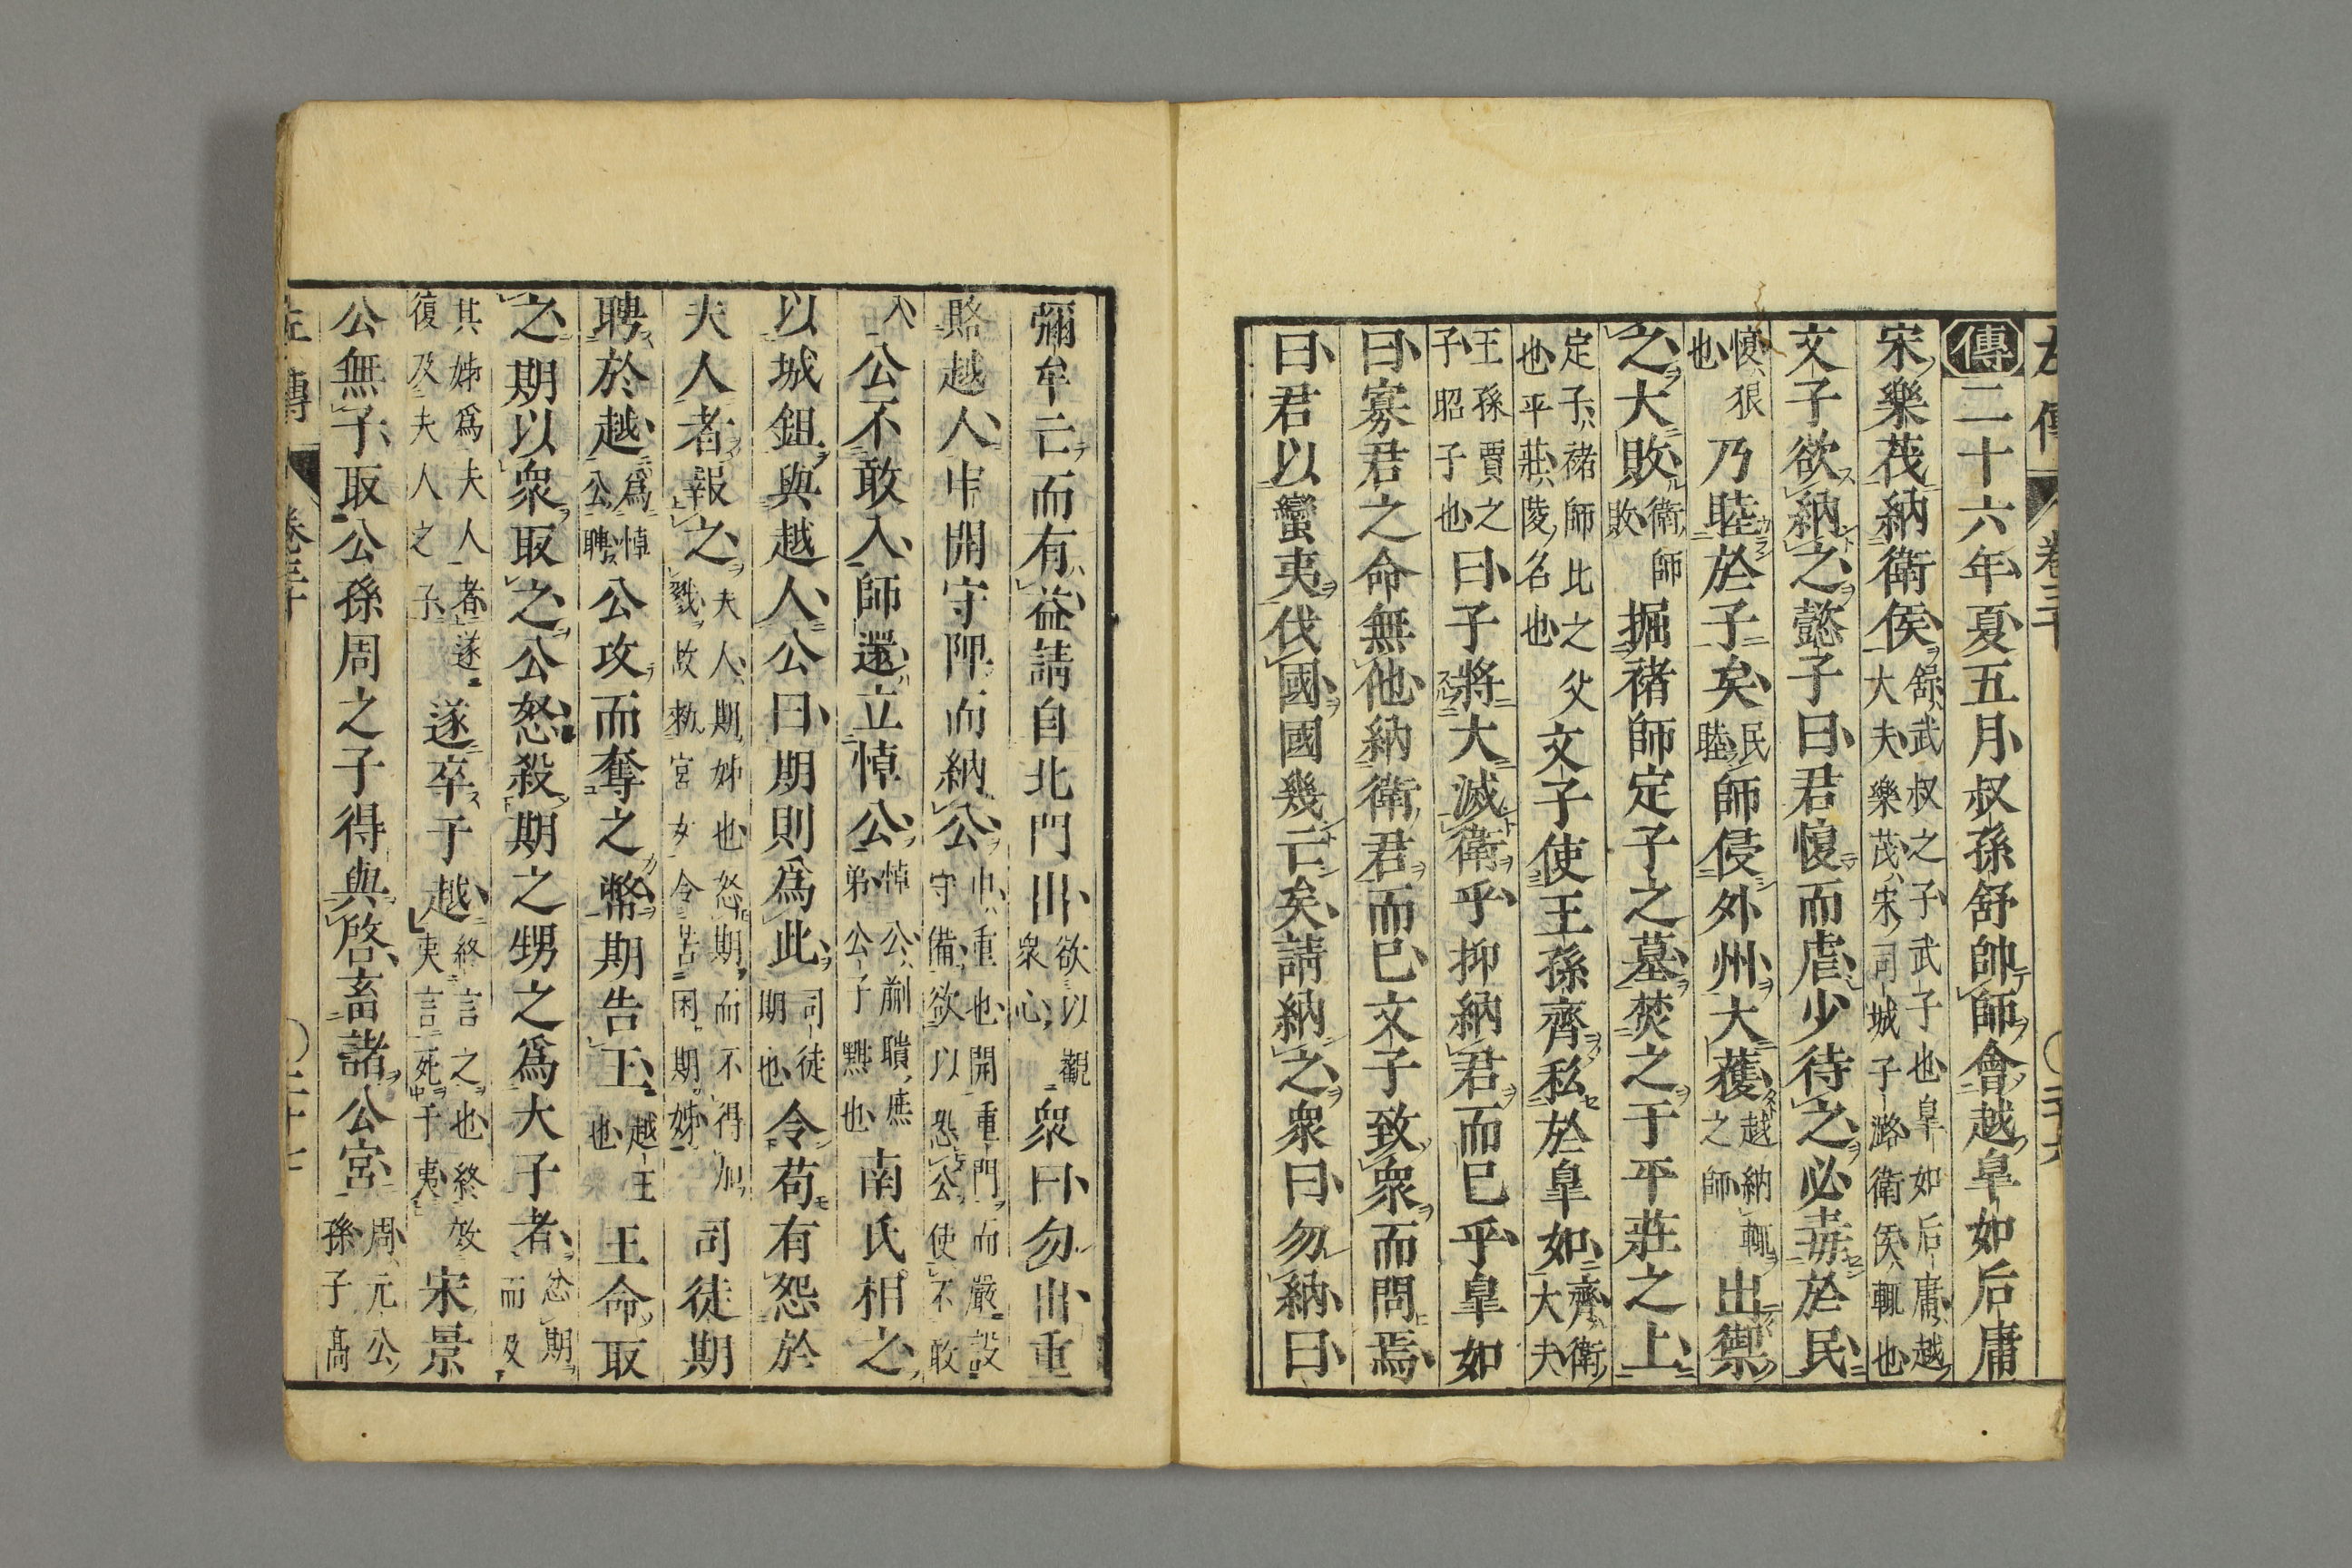 傳二十六年夏五月叔孫舒帥師會越皐如后庸
宋樂茷納衛侯舒武叔之子武子也皐如后庸越大夫樂茂宋司城子潞衛侯輒也
文子欲納之懿子曰君愎而虐少待之必毒於民
愎狠也乃睦於子矣民睦師侵外州大獲越納輒之師出禦
之大敗衛師敗掘褚師定子之墓焚之于平莊之上
定子褚師比之父也平莊陵名也文子使王孫齊私於皐如齊衛大夫
王孫賈之子昭子也曰子將大滅衛乎抑納君而已乎皐如
曰寡君之命無他納衛君而已文子致衆而問焉
曰君以蠻夷伐國國幾亡矣請納之衆曰勿納曰
彌牟亡而有益請自北門出欲以觀衆心衆曰勿出重
賂越人申開守陴而納公申重也開重門而嚴設守備欲以恐公使不敢
入公不敢入師還立悼公悼公蒯聵庶弟公子黚也南氏相之
以城鉏與越人公曰期則爲此司徒期也令苟有怨於
夫人者報之夫人期姊也怒期而不得加戮故敕宮女令苦困期姊司徒期
聘於越爲悼公聘公攻而奪之幣期告王越王也王命取
之期以衆取之公怒殺期之甥之爲大子者忿期而及
其姊爲夫人者遂復及夫人之子遂卒于越終言之也終效夷言死于夷宋景
公無子取公孫周之子得與啓畜諸公宮周元公孫子高